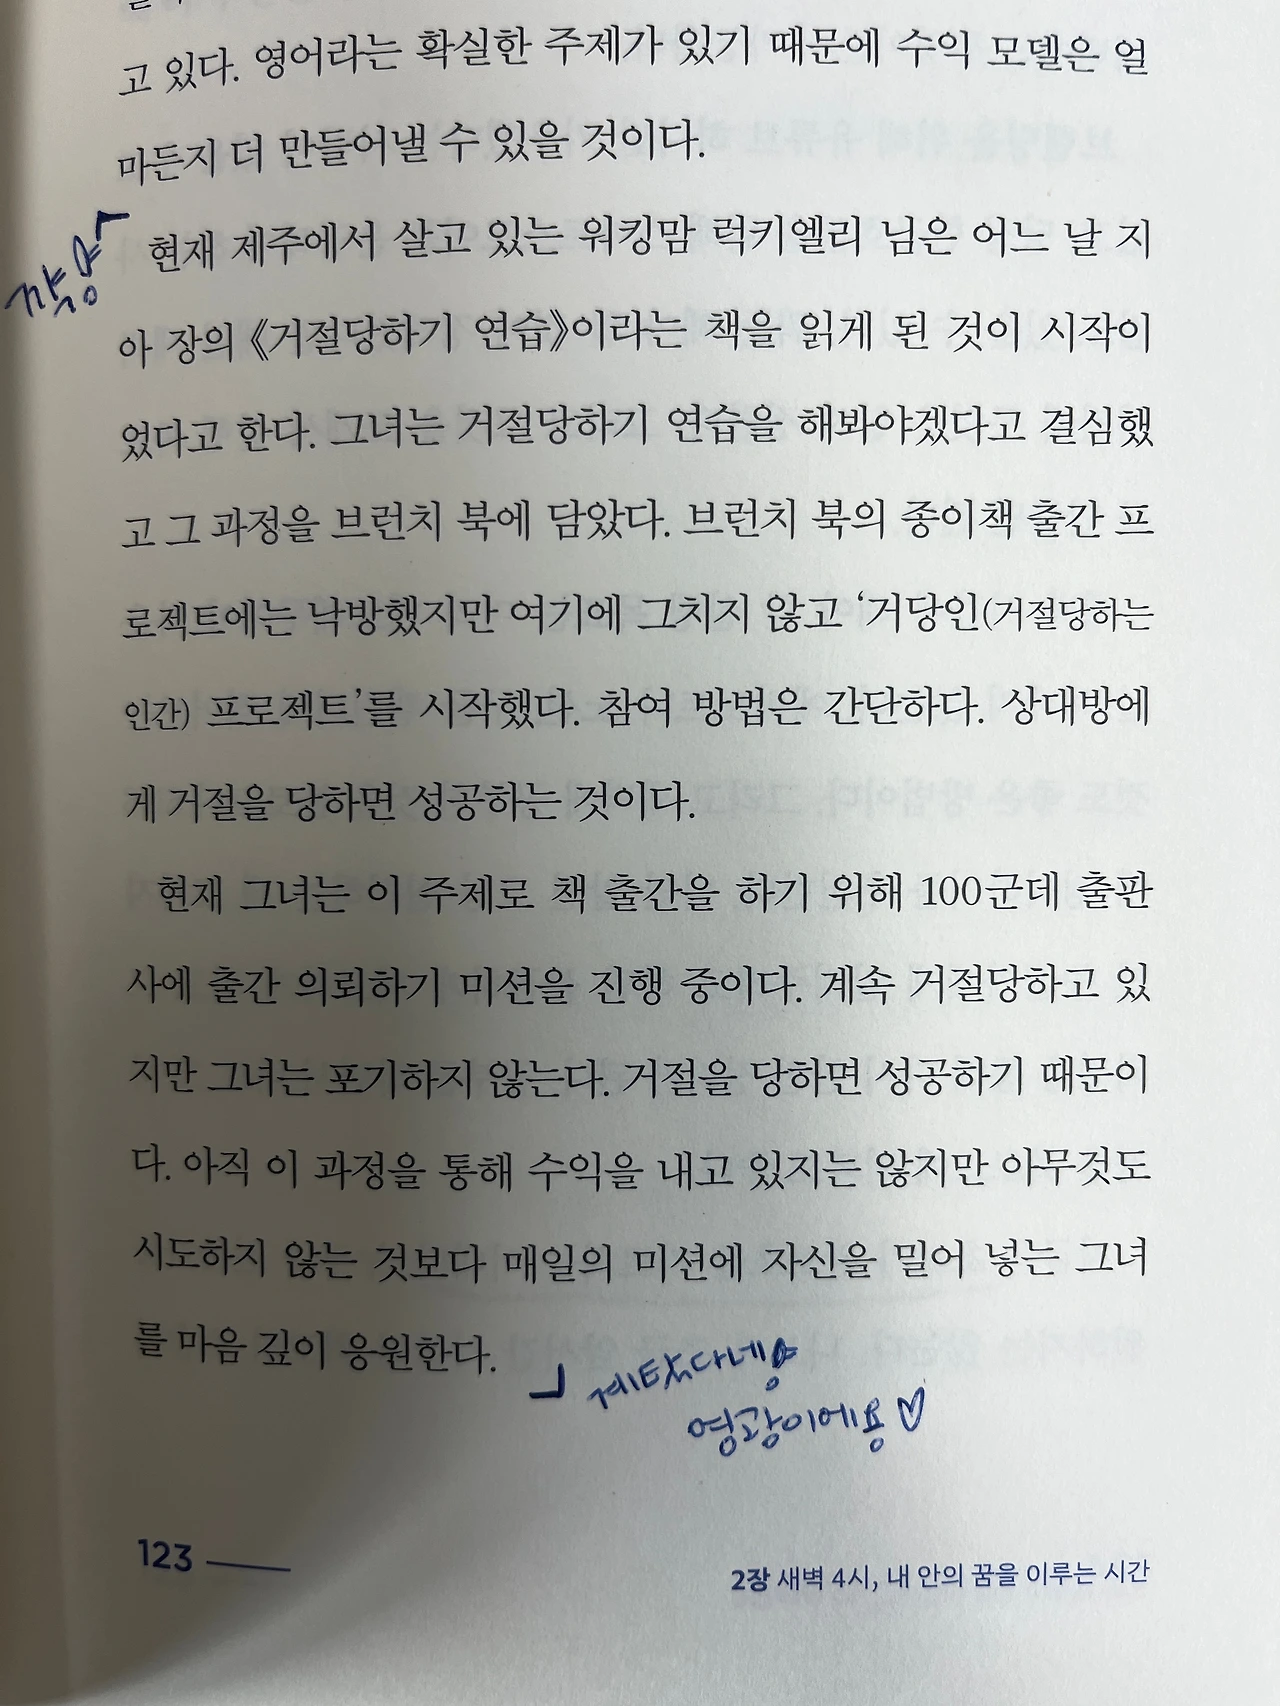 고 있다. 영어라는 확실한 주제가 있기 때문에 수익 모델은 얼
마든지 더 만들어낼 수 있을 것이다.
꺅양
현재 제주에서 살고 있는 워킹맘 럭키엘리 님은 어느 날 지
아 장의 《거절당하기 연습》이라는 책을 읽게 된 것이 시작이
었다고 한다. 그녀는 거절당하기 연습을 해봐야겠다고 결심했
고 그 과정을 브런치 북에 담았다. 브런치 북의 종이책 출간 프
로젝트에는 낙방했지만 여기에 그치지 않고 ‘거당인(거절당하는
인간) 프로젝트’를 시작했다. 참여 방법은 간단하다. 상대방에
게 거절을 당하면 성공하는 것이다.
현재 그녀는 이 주제로 책 출간을 하기 위해 100군데 출판
사에 출간 의뢰하기 미션을 진행 중이다. 계속 거절당하고 있
지만 그녀는 포기하지 않는다. 거절을 당하면 성공하기 때문이
다. 아직 이 과정을 통해 수익을 내고 있지는 않지만 아무것도
시도하지 않는 것보다 매일의 미션에 자신을 밀어 넣는 그녀
를 마음 깊이 응원한다.
영광이에용♡
123
2장 새벽 4시, 내 안의 꿈을 이루는 시간